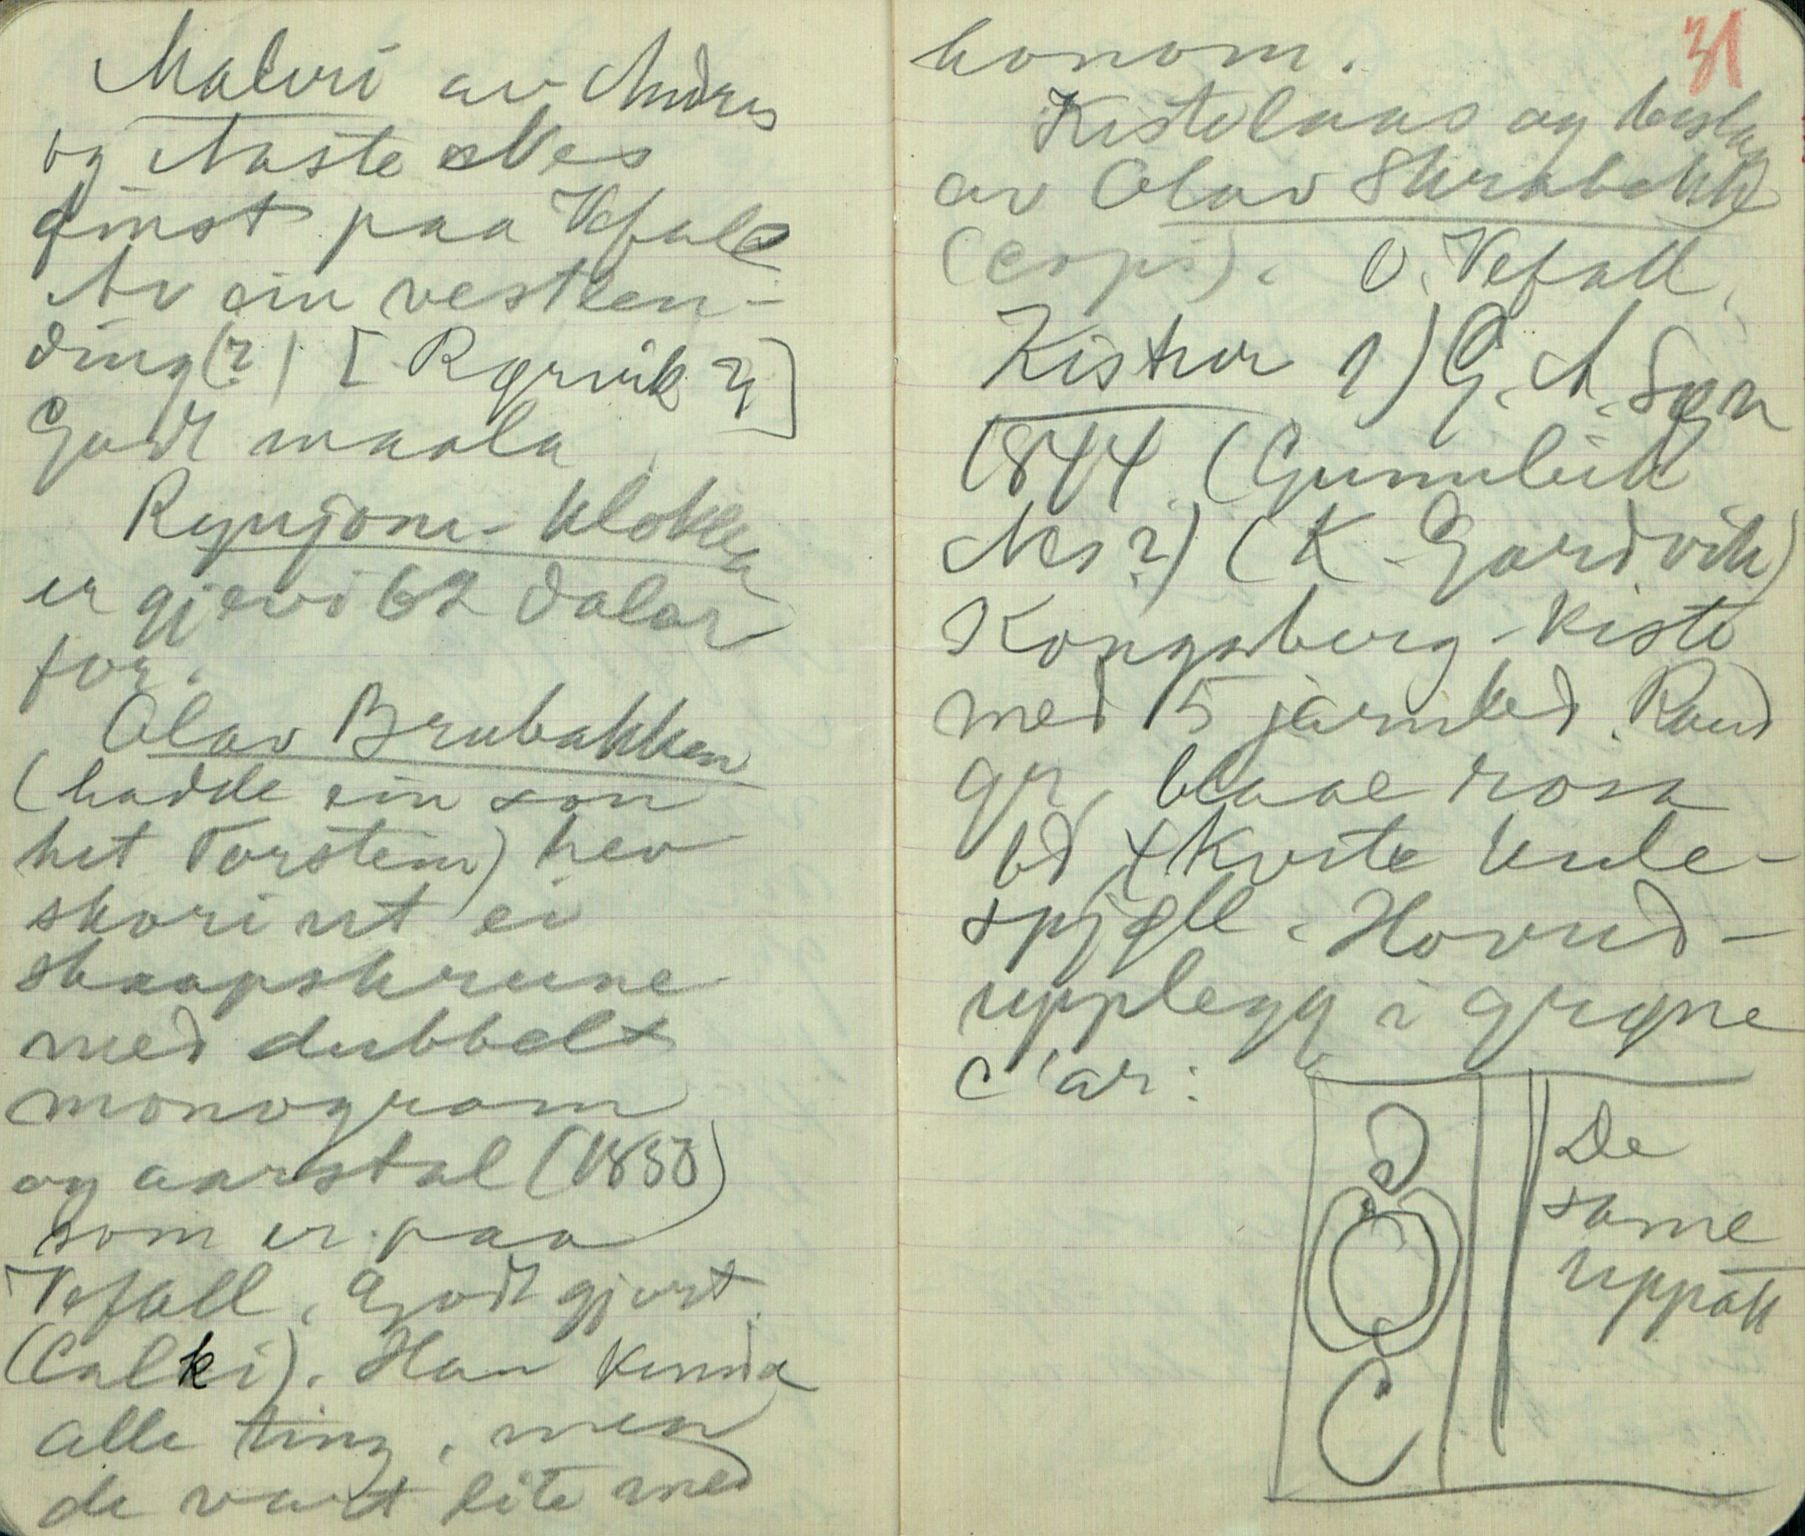 Maleri av Andres
og Aaste Nes
finst paa Vefale
Av ein vestlen-
ding(?) [Rørvik ?]
Godt maala.
Rynjom-klokka
er gjevi 62 dalar
for.
Olav Brubakken
(hadde ein son
het Torstein) hev
skori ut ei
skaapskrune
med dubbelt
monogram
og aarstal (1850)
som er paa
Vefall. Godt gjort.
(Calki). Han kunna
alle ting, men
de vart lite med
31
honom.
Kistelaas og beslag
av Olav Skrabekk
(copi). O. Vefall.
Kistur 1) G. A. Søn
1844 (Gunnleik
Nes?) (K. Gardvik)
Kongsberg-kiste
med 5 järnbed. Raud
gr, blaae rosa
bd, kvite kule-
spjøll. Hovud-
upplegg i grøne
c'ar:
De
same
uppatt